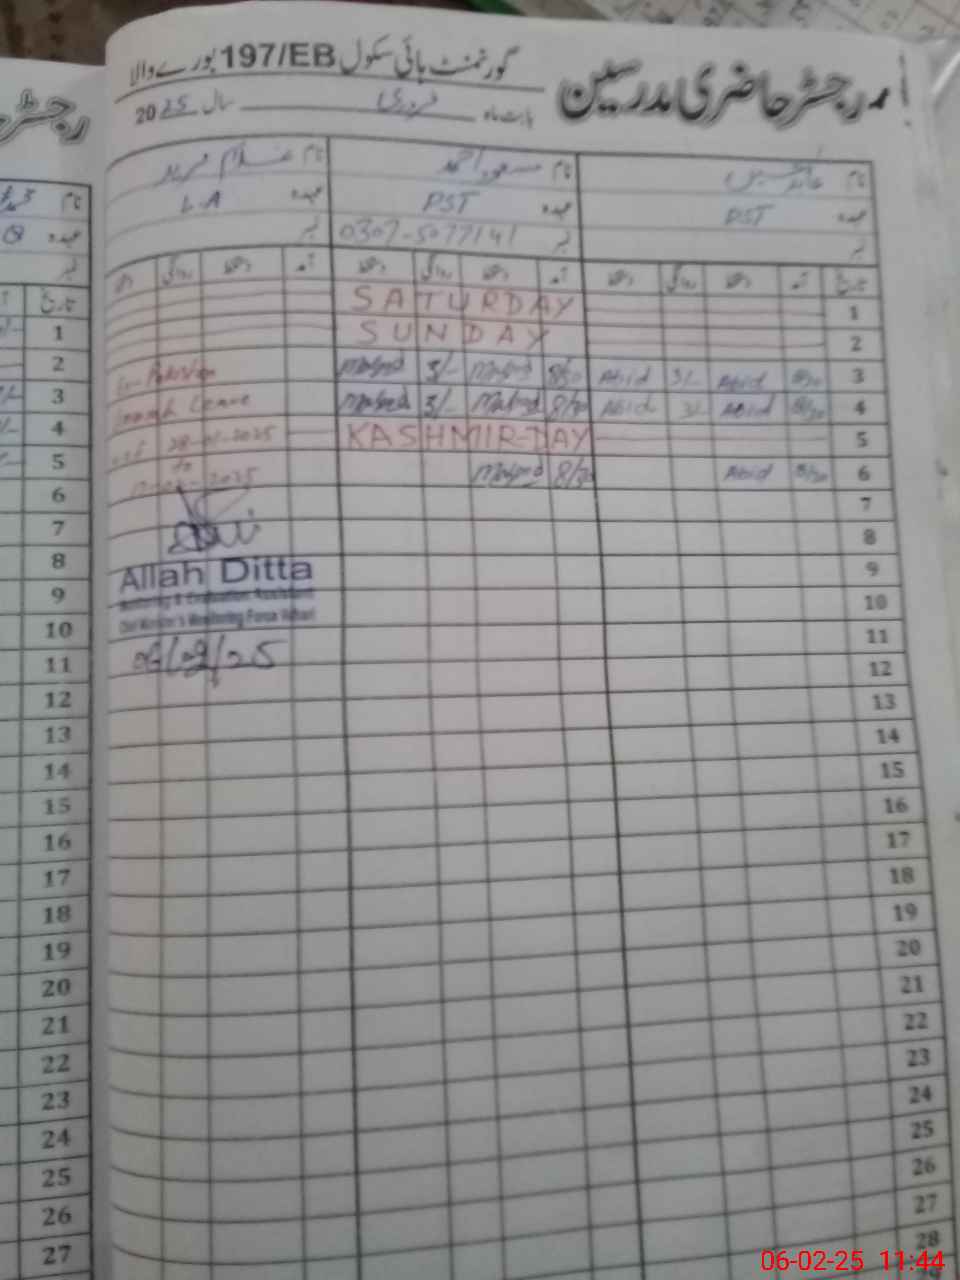 رجسٹر حاضری مدرسین
گورنمنٹ ہائی سکول 197/EB بورے والا
بابت ماہ فروری سال 2025
نام عابد حسین نام مسعود احمد نام غلام فرید
عہدہ PST عہدہ PST عہدہ L.A
نمبر نمبر 0307-5077141 نمبر
تاریخ آمد دستخط روانگی دستخط آمد دستخط روانگی دستخط آمد دستخط روانگی
SATURDAY 1
SUNDAY 2
Ex-Pakistan Masood 3/- Masood 8/30 Abid 3/- Abid 8/30 3
Leave Masood 3/- Masood 8/30 Abid 3/- Abid 8/30 4
28-01-2025 KASHMIR-DAY 5
to
2025 Masood 8/30 Abid 8/30 6
7
8
Allah Ditta 9
Monitoring & Evaluation Assistant
Chief Minister's Monitoring Force Vehari 10
06/02/25 11
12
13
14
15
16
17
18
19
20
21
22
23
24
25
26
27
28
رجسٹر
نام
عہدہ
نمبر
تاریخ
1
2
3
4
5
6
7
8
9
10
11
12
13
14
15
16
17
18
19
20
21
22
23
24
25
26
27
06-02-25 11:44